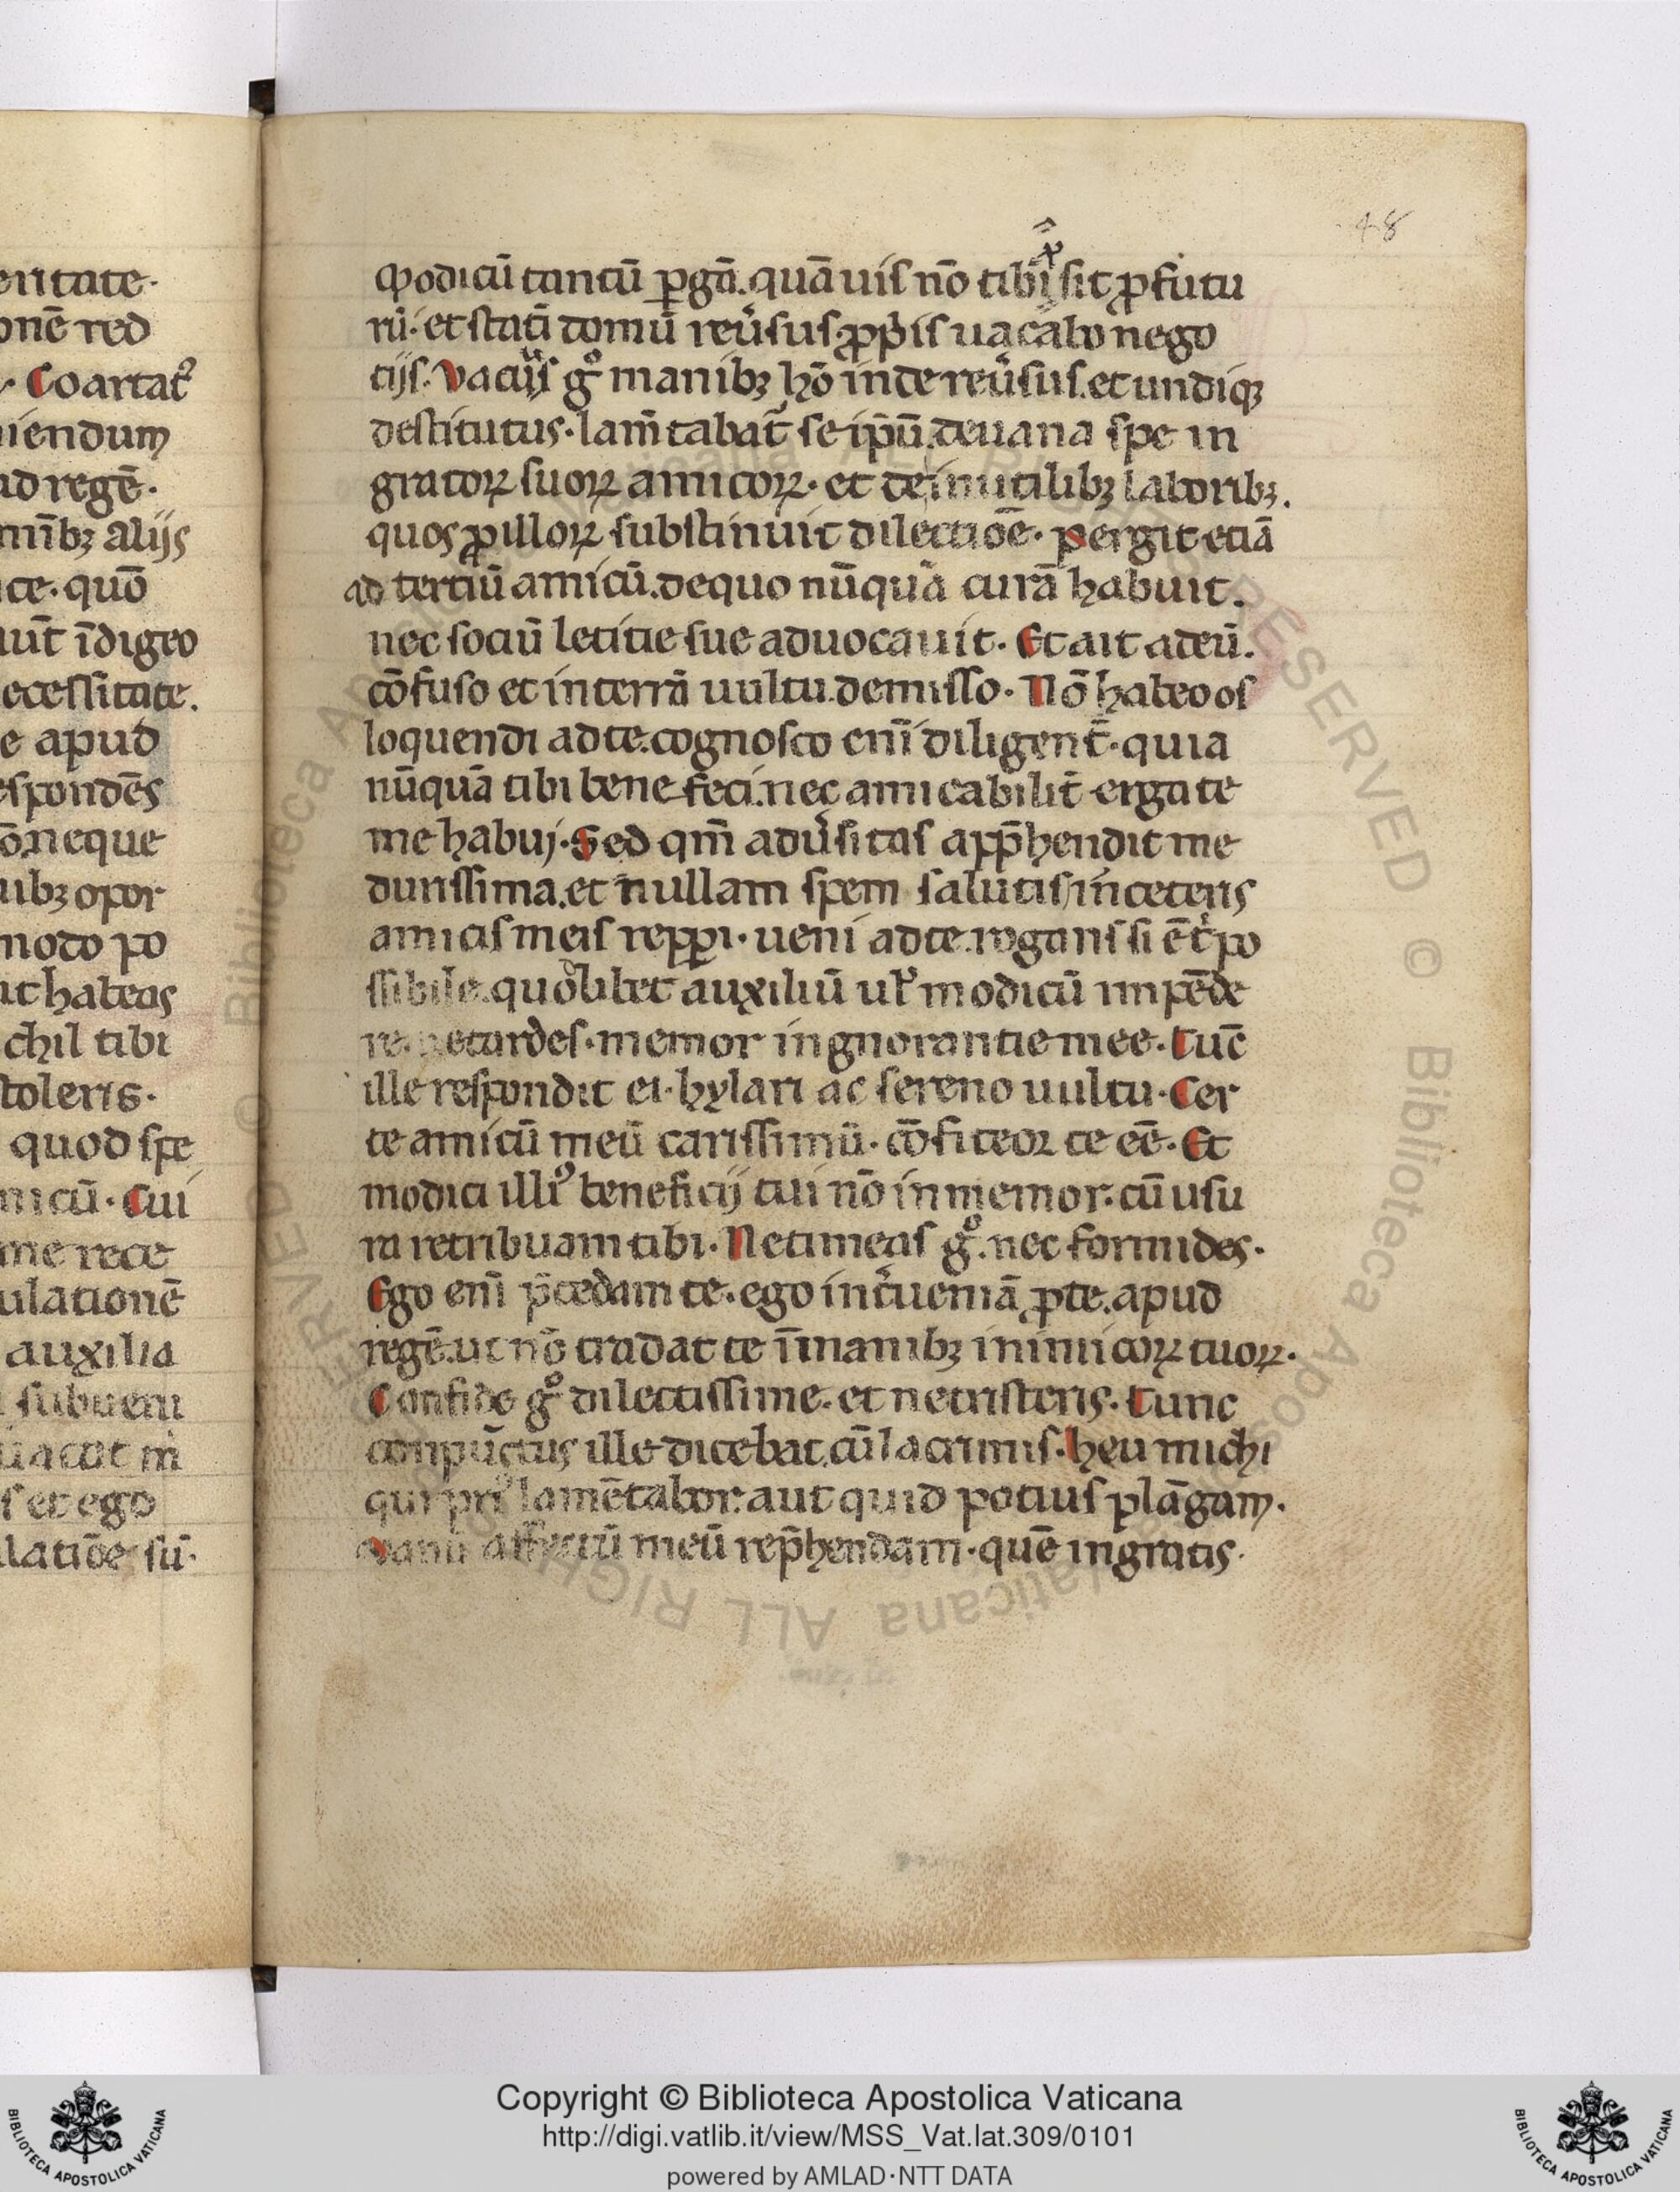 48
ꝙodicū tantū ꝑgā. quāuis nō tibi sit ꝓfutu
rū. et statī domū reu͛sus. ꝓpͥis uacabo nego
tijs. Vacuis gͦ manibꝫ hō inde reu͛sus. et undiqꝫ
destitutus. lam̄tabat᷑ se ip̄ū. de uana spe in
gratoꝝ suoꝝ amicoꝝ. et de inutilibꝫ laboribꝫ.
quos ꝓ illoꝝ substinuit dilectiōe. Pergit etiā
ad tertiū amicū. de quo nūquā curā habuit.
nec sociū letitie sue aduocauit. Et ait ad eū.
cōfuso et in terrā uultu demisso. Nō habeo os
loquendi ad te. cognosco enī diligent̄. quia
nūquā tibi bene feci. nec amicabilit̄ erga te
me habuj. Sed qm̄ adu͛sitas app̄hendit me
durissima. et nullam spem salutis in ceteris
amicis meis repperi. ueni ad te rogans si ēt po
ssibile. quodlibet auxiliū ul̓ modicū impēde
re. ne tardes. memor ingnorantie mee. Tūc
ille respondit ei. hylari ac sereno uultu. Cer
te amicū meū carissimū. cōfiteor te eē. Et
modici illiꝰ beneficij tui nō inmemor. cū usu
ra retribuam tibi. Ne timeas gͦ. nec formides.
Ego enī p̄cedam te. ego int͛ueniā ꝓ te. apud
regē. ut nō tradat te ī manibꝫ inimicoꝝ tuoꝝ.
Confide gͦ dilectissime. et ne tristeris. Tunc
conpūctus ille dicebat. cū lacrimis. heu michi
qui priꝰ lamētabor. aut quid potius plāgam.
Vanū affectū meū rep̄hendam. quē ingratis.
eritate.
onē red
Coartat᷑
niendum
ad regē.
mībꝫ alijs
ce. quō
ūt īdigeo
ecessitate.
e apud
espondēs
ō. neque
uibꝫ opor
modo po
ut habeas
chil tibi
toleris.
quod spe
micū. Cui
me rece
ulationē
auxilia
subueni
s et ego
latiōe sū.
Copyright © Biblioteca Apostolica Vaticana
http://digi.vatlib.it/view/MSS_Vat.lat.309/0101
powered by AMLAD·NTT DATA
BIBLIOTECA APOSTOLICA VATICANA
BIBLIOTECA APOSTOLICA VATICANA